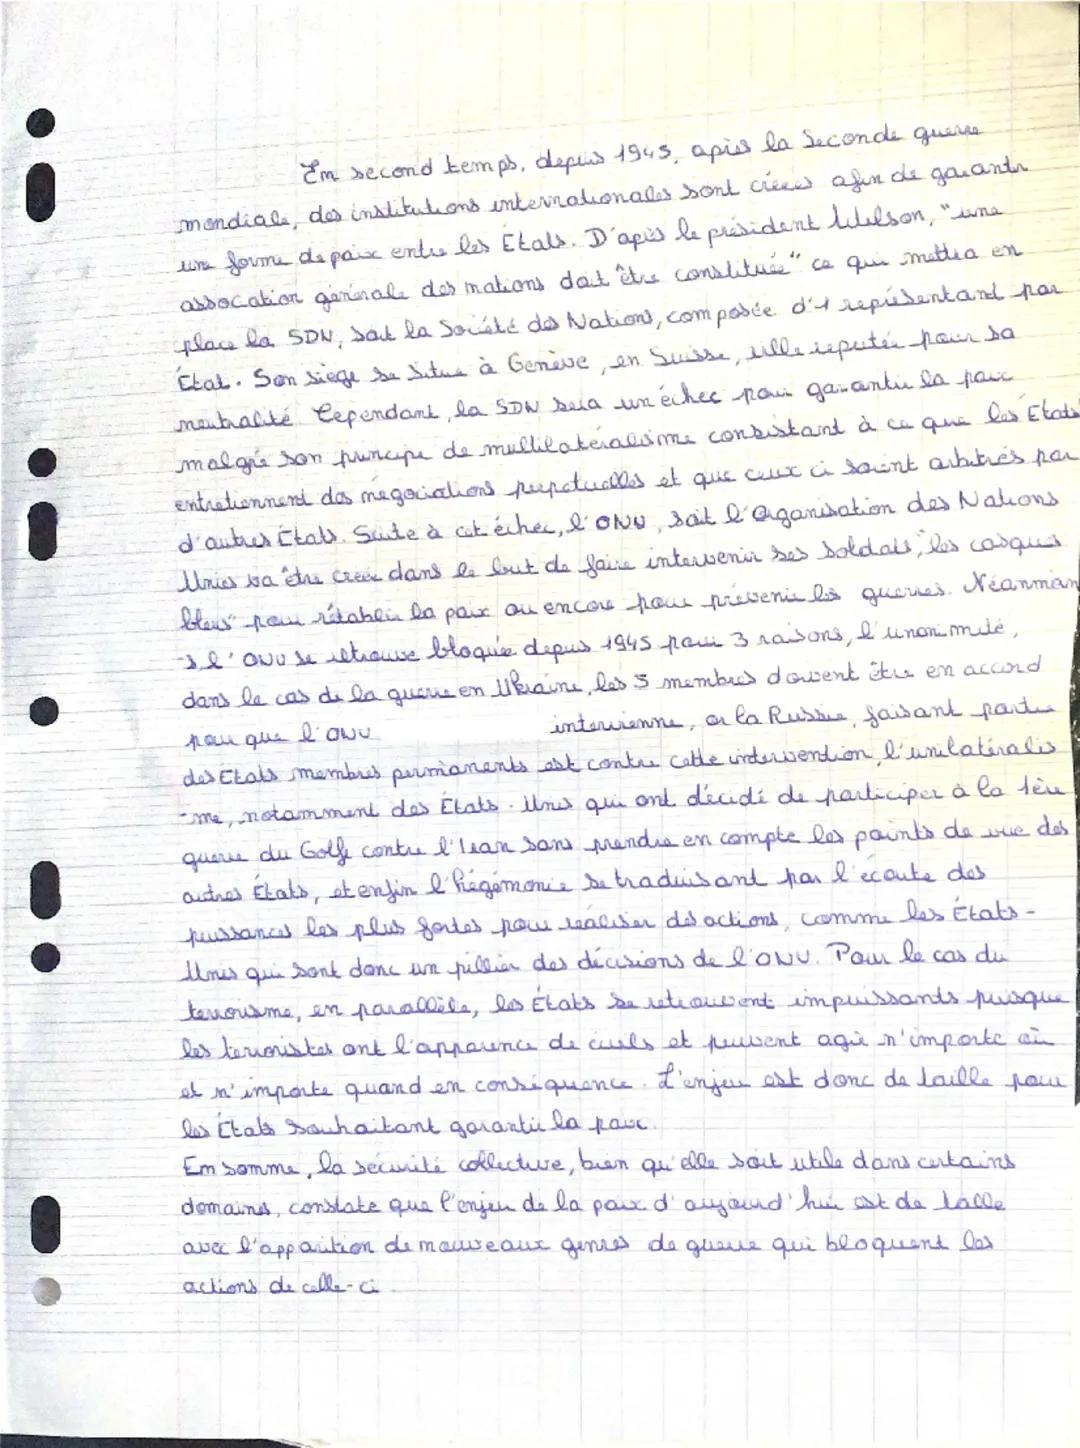 En second temps, depuis 1945, après la Seconde guerre
mondiale, des institutions internationales sont créées afin de garantir
une forme de paix entre les États. D'après le président Wilson, "une
assocation générale des nations doit être constituée" ce qui mettra en
place la SDN, soit la Société des Nations, composée d'1 représentand par
État. Son siège se situe à Genève, en Suisse, ville reputée pour sa
neutralité. Cependant, la SDN sera un échec pour garantir la paix
malgré son principe de multilatéralisme consistant à ce que les États
entretiennent des négociations perpetuelles et que ceux ci soient arbitrés par
d'autres États. Suite à cet échec, l'ONU, soit l'Organisation des Nations
Unies va être créée dans le but de faire intervenir ses soldats, "les casques
bleus" pour rétablir la paix ou encore pour prévenir les guerres. Néanmoin
-s l'ONU se retrouve bloquée depuis 1945 pour 3 raisons, l'unanimité,
dans le cas de la guerre en Ukraine, les 5 membres doivent être en accord
pour que l'ONU intervienne, or la Russie, faisant partie
des États membres permanents est contre cette intervention, l'unilatéralis
-me, notamment des États-Unis qui ont décidé de participer à la 1ère
guerre du Golfe contre l'Iran sans prendre en compte les points de vue des
autres États, et enfin l'hégémonie se traduisant par l'écoute des
puissances les plus fortes pour réaliser des actions, comme les États-
Unis qui sont donc un pillier des décisions de l'ONU. Pour le cas du
terrorisme, en parallèle, les États se retrouvent impuissants puisque
les terroristes ont l'apparence de civils et peuvent agir n'importe où
et n'importe quand en conséquence. L'enjeu est donc de taille pour
les États souhaitant garantir la paix.
En somme, la sécurité collective, bien qu'elle soit utile dans certains
domaines, constate que l'enjeu de la paix d'aujourd'hui est de talle
avec l'apparition de nouveaux genres de guerre qui bloquent les
actions de celle-ci.